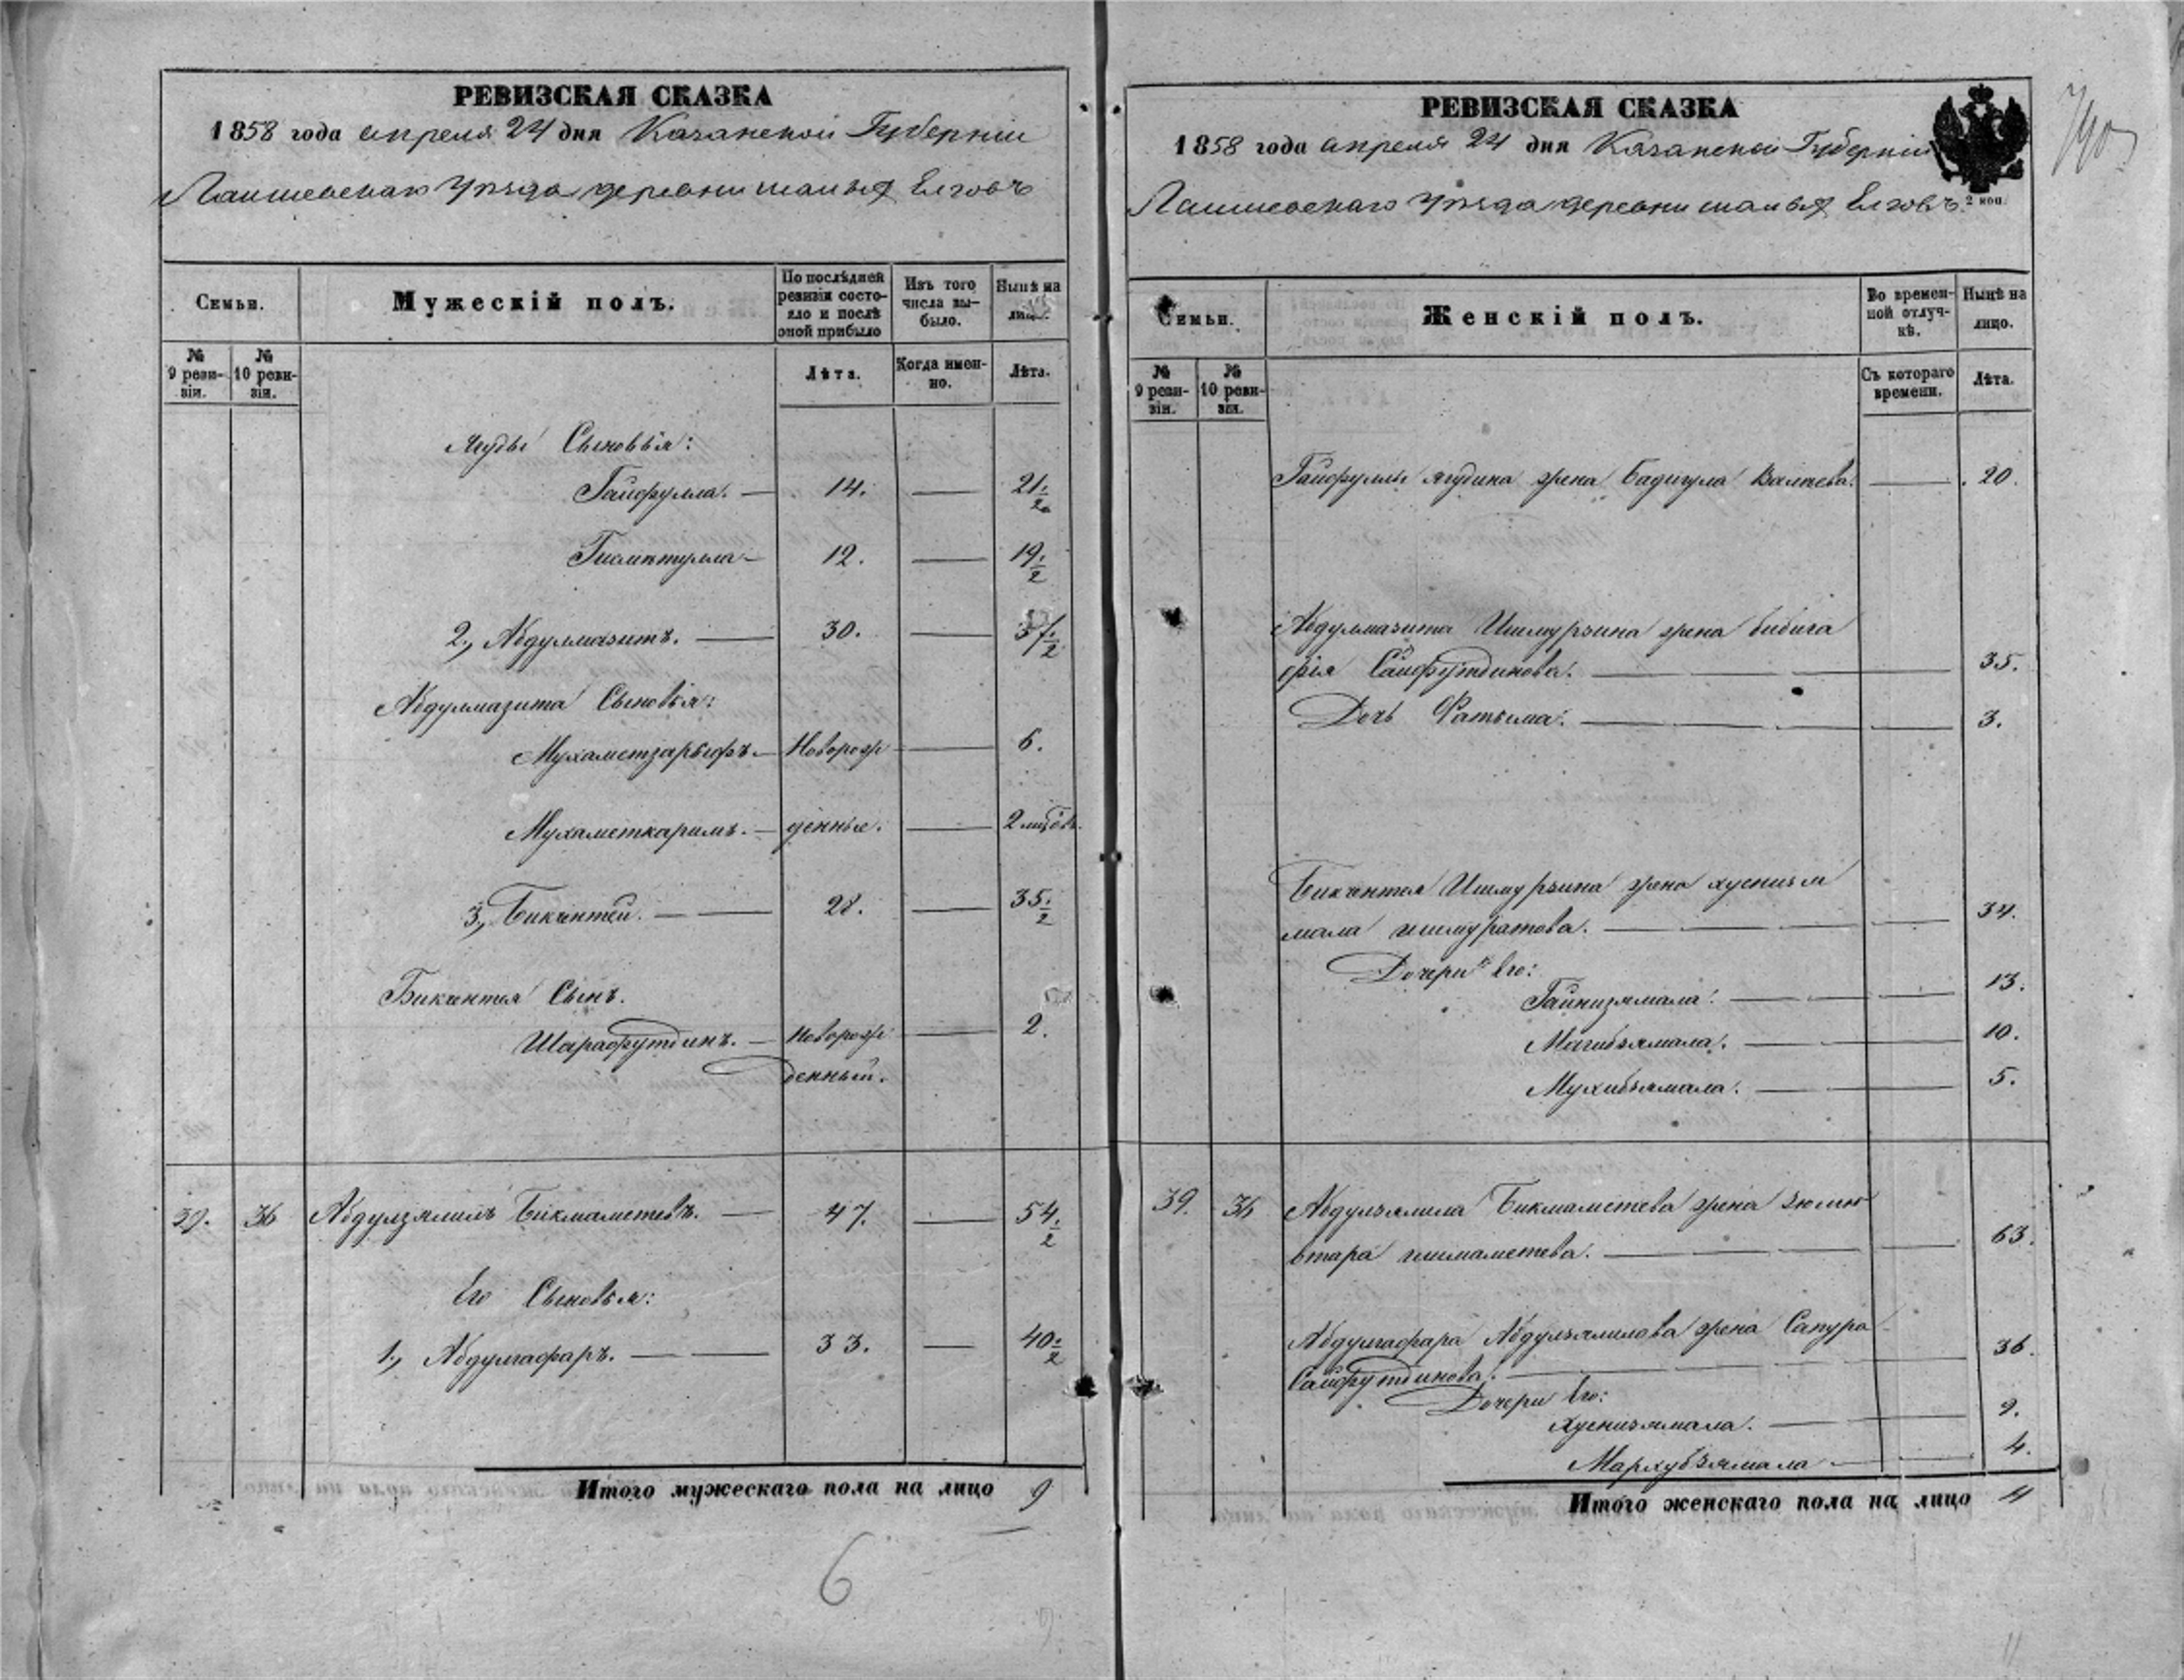 РЕВИЗСКАЯ СКАЗКА
1858 года апреля 24 дня Казанской Губерніи
Лаишевскаго Уѣзда деревни малыя Елговъ
Семьи.
Мужескій полъ.
По послѣдней ревизіи состояло и послѣ оной прибыло
Изъ того числа выбыло.
Нынѣ на лицо.
№ 9 ревизіи.
№ 10 ревизіи.
Лѣта.
Когда именно.
Лѣта.
Ягуды Сыновья:
Гайфулла. — 14. — 21 1/2
12. — 19 1/2
2., Абдулмазитъ. — 30. — 37 1/2
Абдулмазита Сыновья:
Мухаметзарыфъ. — Новорож — 6.
Мухаметкаримъ. — денные. — 2
3., Бикчинтей. — 28. — 35 1/2
Бикчинтея Сынъ.
Шарафутдинъ. — Новорож — 2.
денный.
39. 36 Абдулзялилъ Бикмаметевъ. — 47. — 54 1/2
Его Сыновья:
1., Абдулгафаръ. — 33. — 40 1/2
Итого мужескаго пола на лицо 9
6
РЕВИЗСКАЯ СКАЗКА
1858 года апреля 24 дня Казанской Губерніи
Лаишевскаго Уѣзда деревни малыя Елговъ
2 коп.
Семьи.
Женскій полъ.
Во временной отлучкѣ.
Нынѣ на лицо.
№ 9 ревизіи.
№ 10 ревизіи.
Съ котораго времени.
Лѣта.
Гайфуллы Ягудина жена Бадигула Валиева. — 20.
Абдулмазита Ишмурзина жена бибига
фія Сайфутдинова. — 35.
Дочь Фатыма. — 3.
Бикчинтея Ишмурзина жена хусниз
мала ишмуратова. — 34.
Дочери Его:
Гайнизямала. — 13.
Магибзямала. — 10.
Мухибзямала. — 5.
39. 36 Абдулзялила Бикмаметева жена
ишмаметева. — 63.
Абдулгафара Абдулзялилова жена Сапура
Сайфутдинова. — 36.
Дочери Его:
Хуснизямала. — 9.
Мархубзямала — 4.
Итого женскаго пола на лицо 11